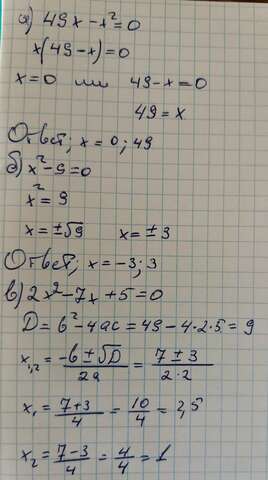 а) 49x - x² = 0
x(49 - x) = 0
x = 0 или 49 - x = 0
49 = x
Ответ; x = 0; 49
б) x² - 9 = 0
x² = 9
x = ±√9 x = ± 3
Ответ; x = -3; 3
в) 2x² - 7x + 5 = 0
D = b² - 4ac = 49 - 4·2·5 = 9
x₁,₂ = (-b ± √D)/2a = (7 ± 3)/2·2
x₁ = (7+3)/4 = 10/4 = 2,5
x₂ = (7-3)/4 = 4/4 = 1